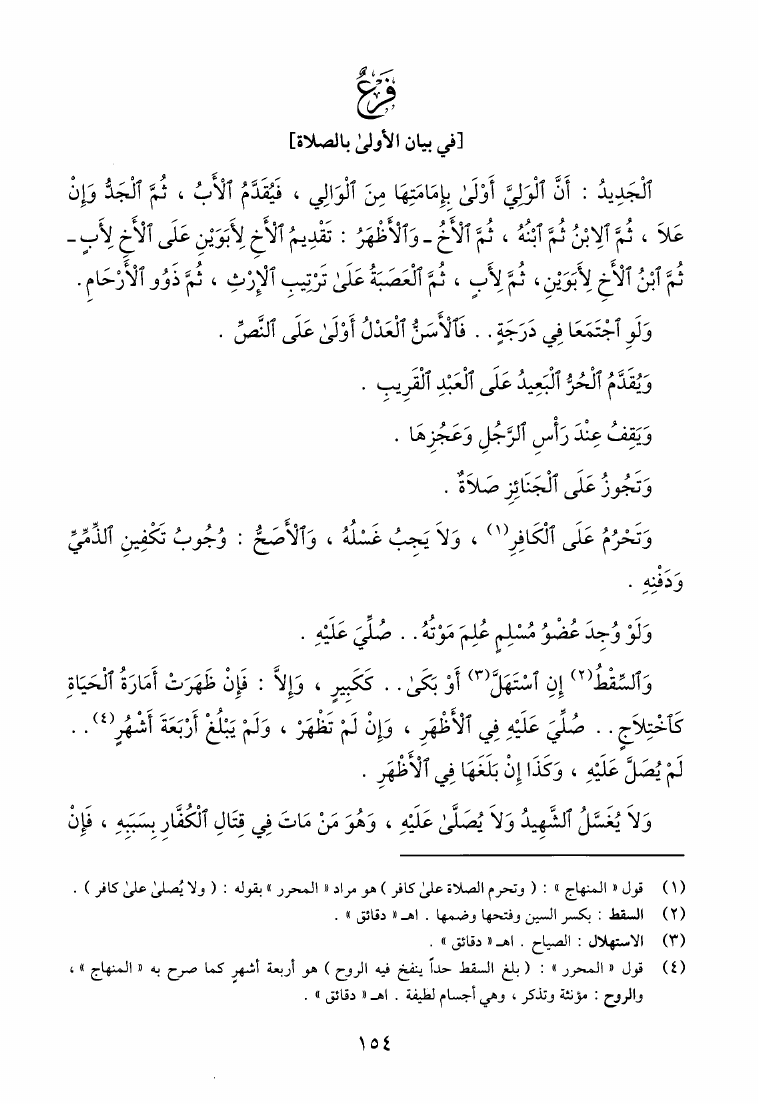 فَرْعٌ
[في بيان الأولىٰ بالصلاة]
ٱلْجَدِيدُ : أَنَّ ٱلْوَلِيَّ أَوْلَىٰ بِإِمَامَتِهَا مِنَ ٱلْوَالِي ، فَيُقَدَّمُ ٱلْأَبُ ، ثُمَّ ٱلْجَدُّ وَإِنْ
عَلاَ ، ثُمَّ ٱلِابْنُ ثُمَّ ٱبْنُهُ ، ثُمَّ ٱلْأَخُ ـ وَٱلْأَظْهَرُ : تَقْدِيمُ ٱلْأَخِ لِأَبَوَيْنِ عَلَى ٱلْأَخِ لِأَبٍ ـ
ثُمَّ ٱبْنُ ٱلْأَخِ لِأَبَوَيْنِ، ثُمَّ لِأَبٍ ، ثُمَّ ٱلْعَصَبَةُ عَلَىٰ تَرْتِيبِ ٱلْإِرْثِ ، ثُمَّ ذَوُو ٱلْأَرْحَامِ.
وَلَوِ ٱجْتَمَعَا فِي دَرَجَةٍ . . فَٱلْأَسَنُّ ٱلْعَدْلُ أَوْلَىٰ عَلَى ٱلنَّصِّ .
وَيُقَدَّمُ ٱلْحُرُّ ٱلْبَعِيدُ عَلَى ٱلْعَبْدِ ٱلْقَرِيبِ .
وَيَقِفُ عِنْدَ رَأْسِ ٱلرَّجُلِ وَعَجُزِهَا .
وَتَجُوزُ عَلَى ٱلْجَنَائِزِ صَلاَةٌ .
وَتَحْرُمُ عَلَى ٱلْكَافِرِ(١) ، وَلاَ يَجِبُ غَسْلُهُ ، وَٱلْأَصَحُّ : وُجُوبُ تَكْفِينِ ٱلذِّمِّيِّ
وَدَفْنِهِ .
وَلَوْ وُجِدَ عُضْوُ مُسْلِمٍ عُلِمَ مَوْتُهُ . . صُلِّيَ عَلَيْهِ .
وَٱلسِّقْطُ(٢) إِنِ ٱسْتَهَلَّ(٣) أَوْ بَكَىٰ . . كَكَبِيرٍ ، وَإِلاَّ : فَإِنْ ظَهَرَتْ أَمَارَةُ ٱلْحَيَاةِ
كَٱخْتِلاَجٍ . . صُلِّيَ عَلَيْهِ فِي ٱلْأَظْهَرِ ، وَإِنْ لَمْ تَظْهَرْ ، وَلَمْ يَبْلُغْ أَرْبَعَةَ أَشْهُرٍ(٤) . .
لَمْ يُصَلَّ عَلَيْهِ ، وَكَذَا إِنْ بَلَغَهَا فِي ٱلْأَظْهَرِ .
وَلاَ يُغَسَّلُ ٱلشَّهِيدُ وَلاَ يُصَلَّىٰ عَلَيْهِ ، وَهُوَ مَنْ مَاتَ فِي قِتَالِ ٱلْكُفَّارِ بِسَبَبِهِ ، فَإِنْ
(١) قول « المنهاج » : ( وتحرم الصلاة علىٰ كافر ) هو مراد « المحرر » بقوله : ( ولا يُصلىٰ علىٰ كافر ) .
(٢) السقط : بكسر السين وفتحها وضمها . اهـ « دقائق » .
(٣) الاستهلال : الصياح . اهـ « دقائق » .
(٤) قول « المحرر » : ( بلغ السقط حداً ينفخ فيه الروح ) هو أربعة أشهرٍ كما صرح به « المنهاج » ،
والروح : مؤنثة وتذكر ، وهي أجسام لطيفة . اهـ « دقائق » .
١٥٤